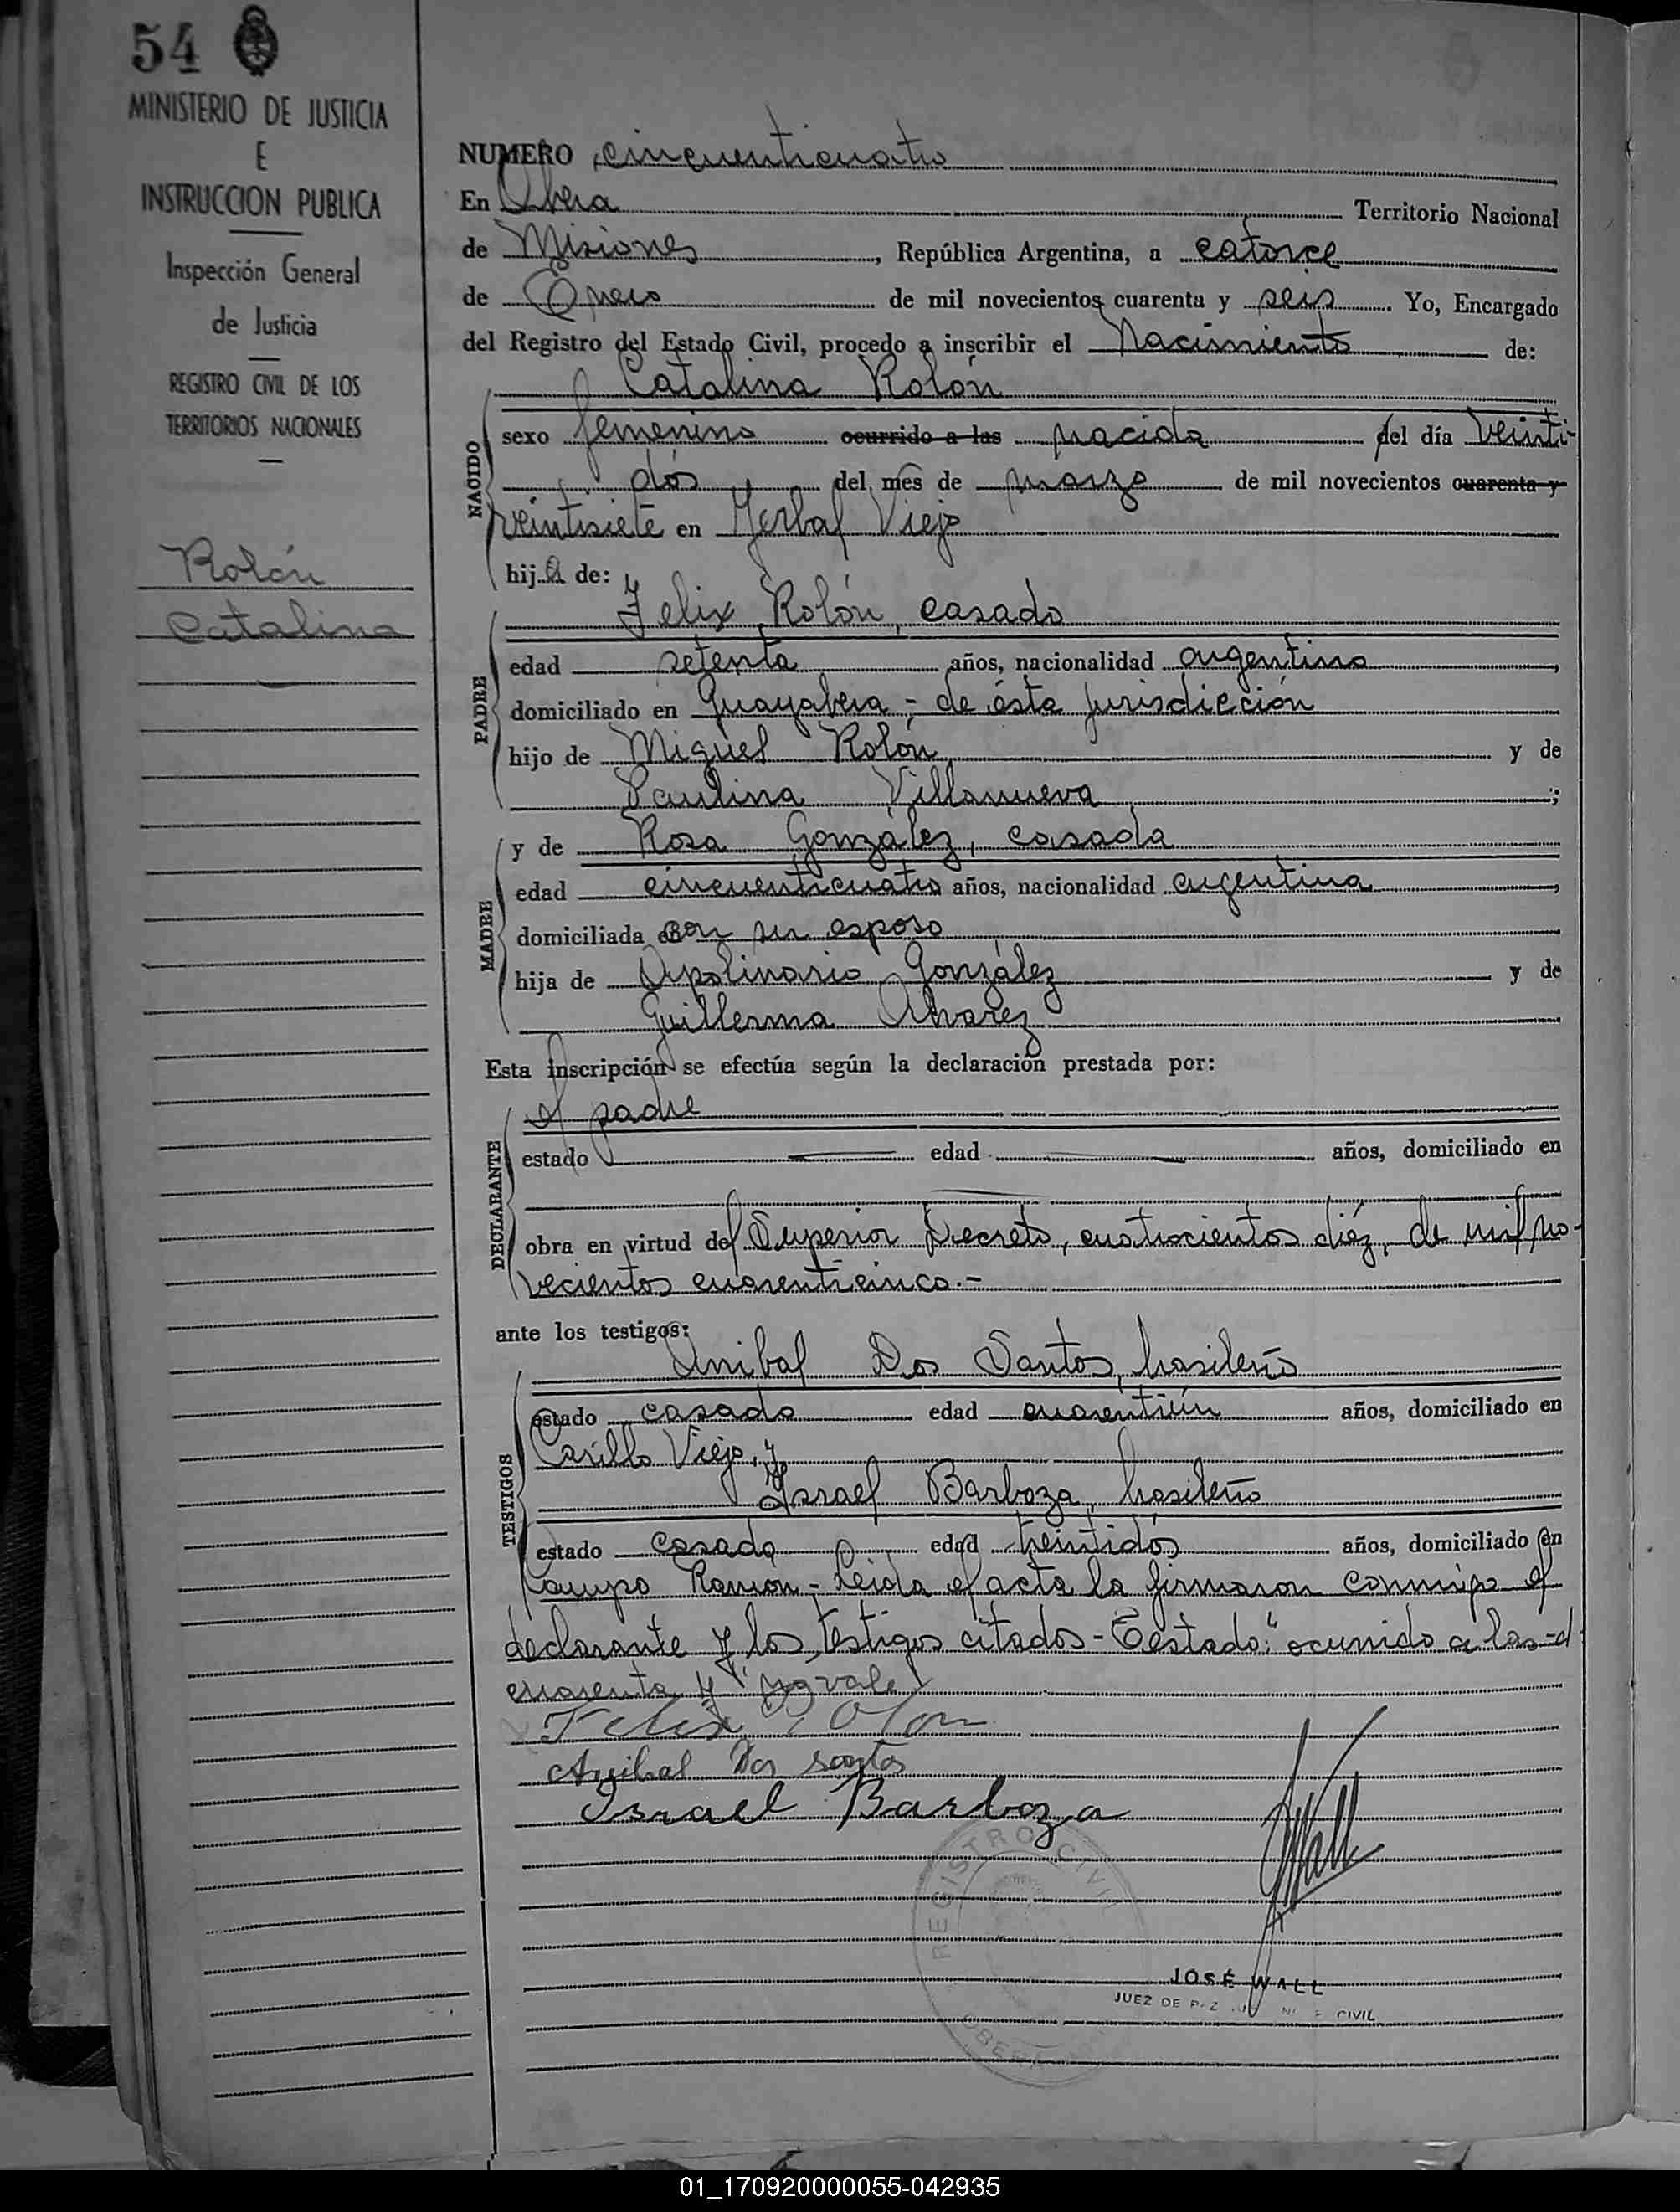 54
MINISTERIO DE JUSTICIA
E
INSTRUCCION PUBLICA
Inspección General
de Justicia
REGISTRO CIVIL DE LOS
TERRITORIOS NACIONALES
Rolón
Catalina
NUMERO cincuenticuatro
En Obera Territorio Nacional
de Misiones, República Argentina, a catorce
de Enero de mil novecientos cuarenta y seis Yo, Encargado
del Registro del Estado Civil, procedo a inscribir el Nacimiento de:
Catalina Rolón
NACIDO
sexo femenino ocurrido a las nacida del día veinti-
dós del mes de marzo de mil novecientos cuarenta y
veintisiete en Yerbal Viejo
hija de:
Felix Rolón, casado
PADRE
edad setenta años, nacionalidad argentina,
domiciliado en Guayabera - de ésta jurisdicción
hijo de Miguel Rolón y de
Paulina Villanueva;
MADRE
y de Rosa González, casada
edad cincuenticuatro años, nacionalidad argentina,
domiciliada con su esposo
hija de Apolinario González y de
Guillerma Alvarez
Esta inscripción se efectúa según la declaración prestada por:
DECLARANTE
el padre
estado edad años, domiciliado en
obra en virtud del Superior Decreto, cuatrocientos diéz, de mil no-
vecientos cuarenticinco.-
ante los testigos:
TESTIGOS
Anibal Dos Santos, brasileño
estado casado edad cuarentiún años, domiciliado en
Viejo, y
Israel Barboza, brasileño
estado casado edad treintidós años, domiciliado en
Campo Ramon - Leida el acta la firmaron conmigo el
declarante y los testigos citados - Testado: "ocurrido a las -d
cuarenta y" no vale
Felix Rolon
Anibal Dos santos
Israel Barboza
REGISTRO CIVIL
OBERA
JOSÉ WALL
JUEZ DE PAZ CIVIL
01_170920000055-042935